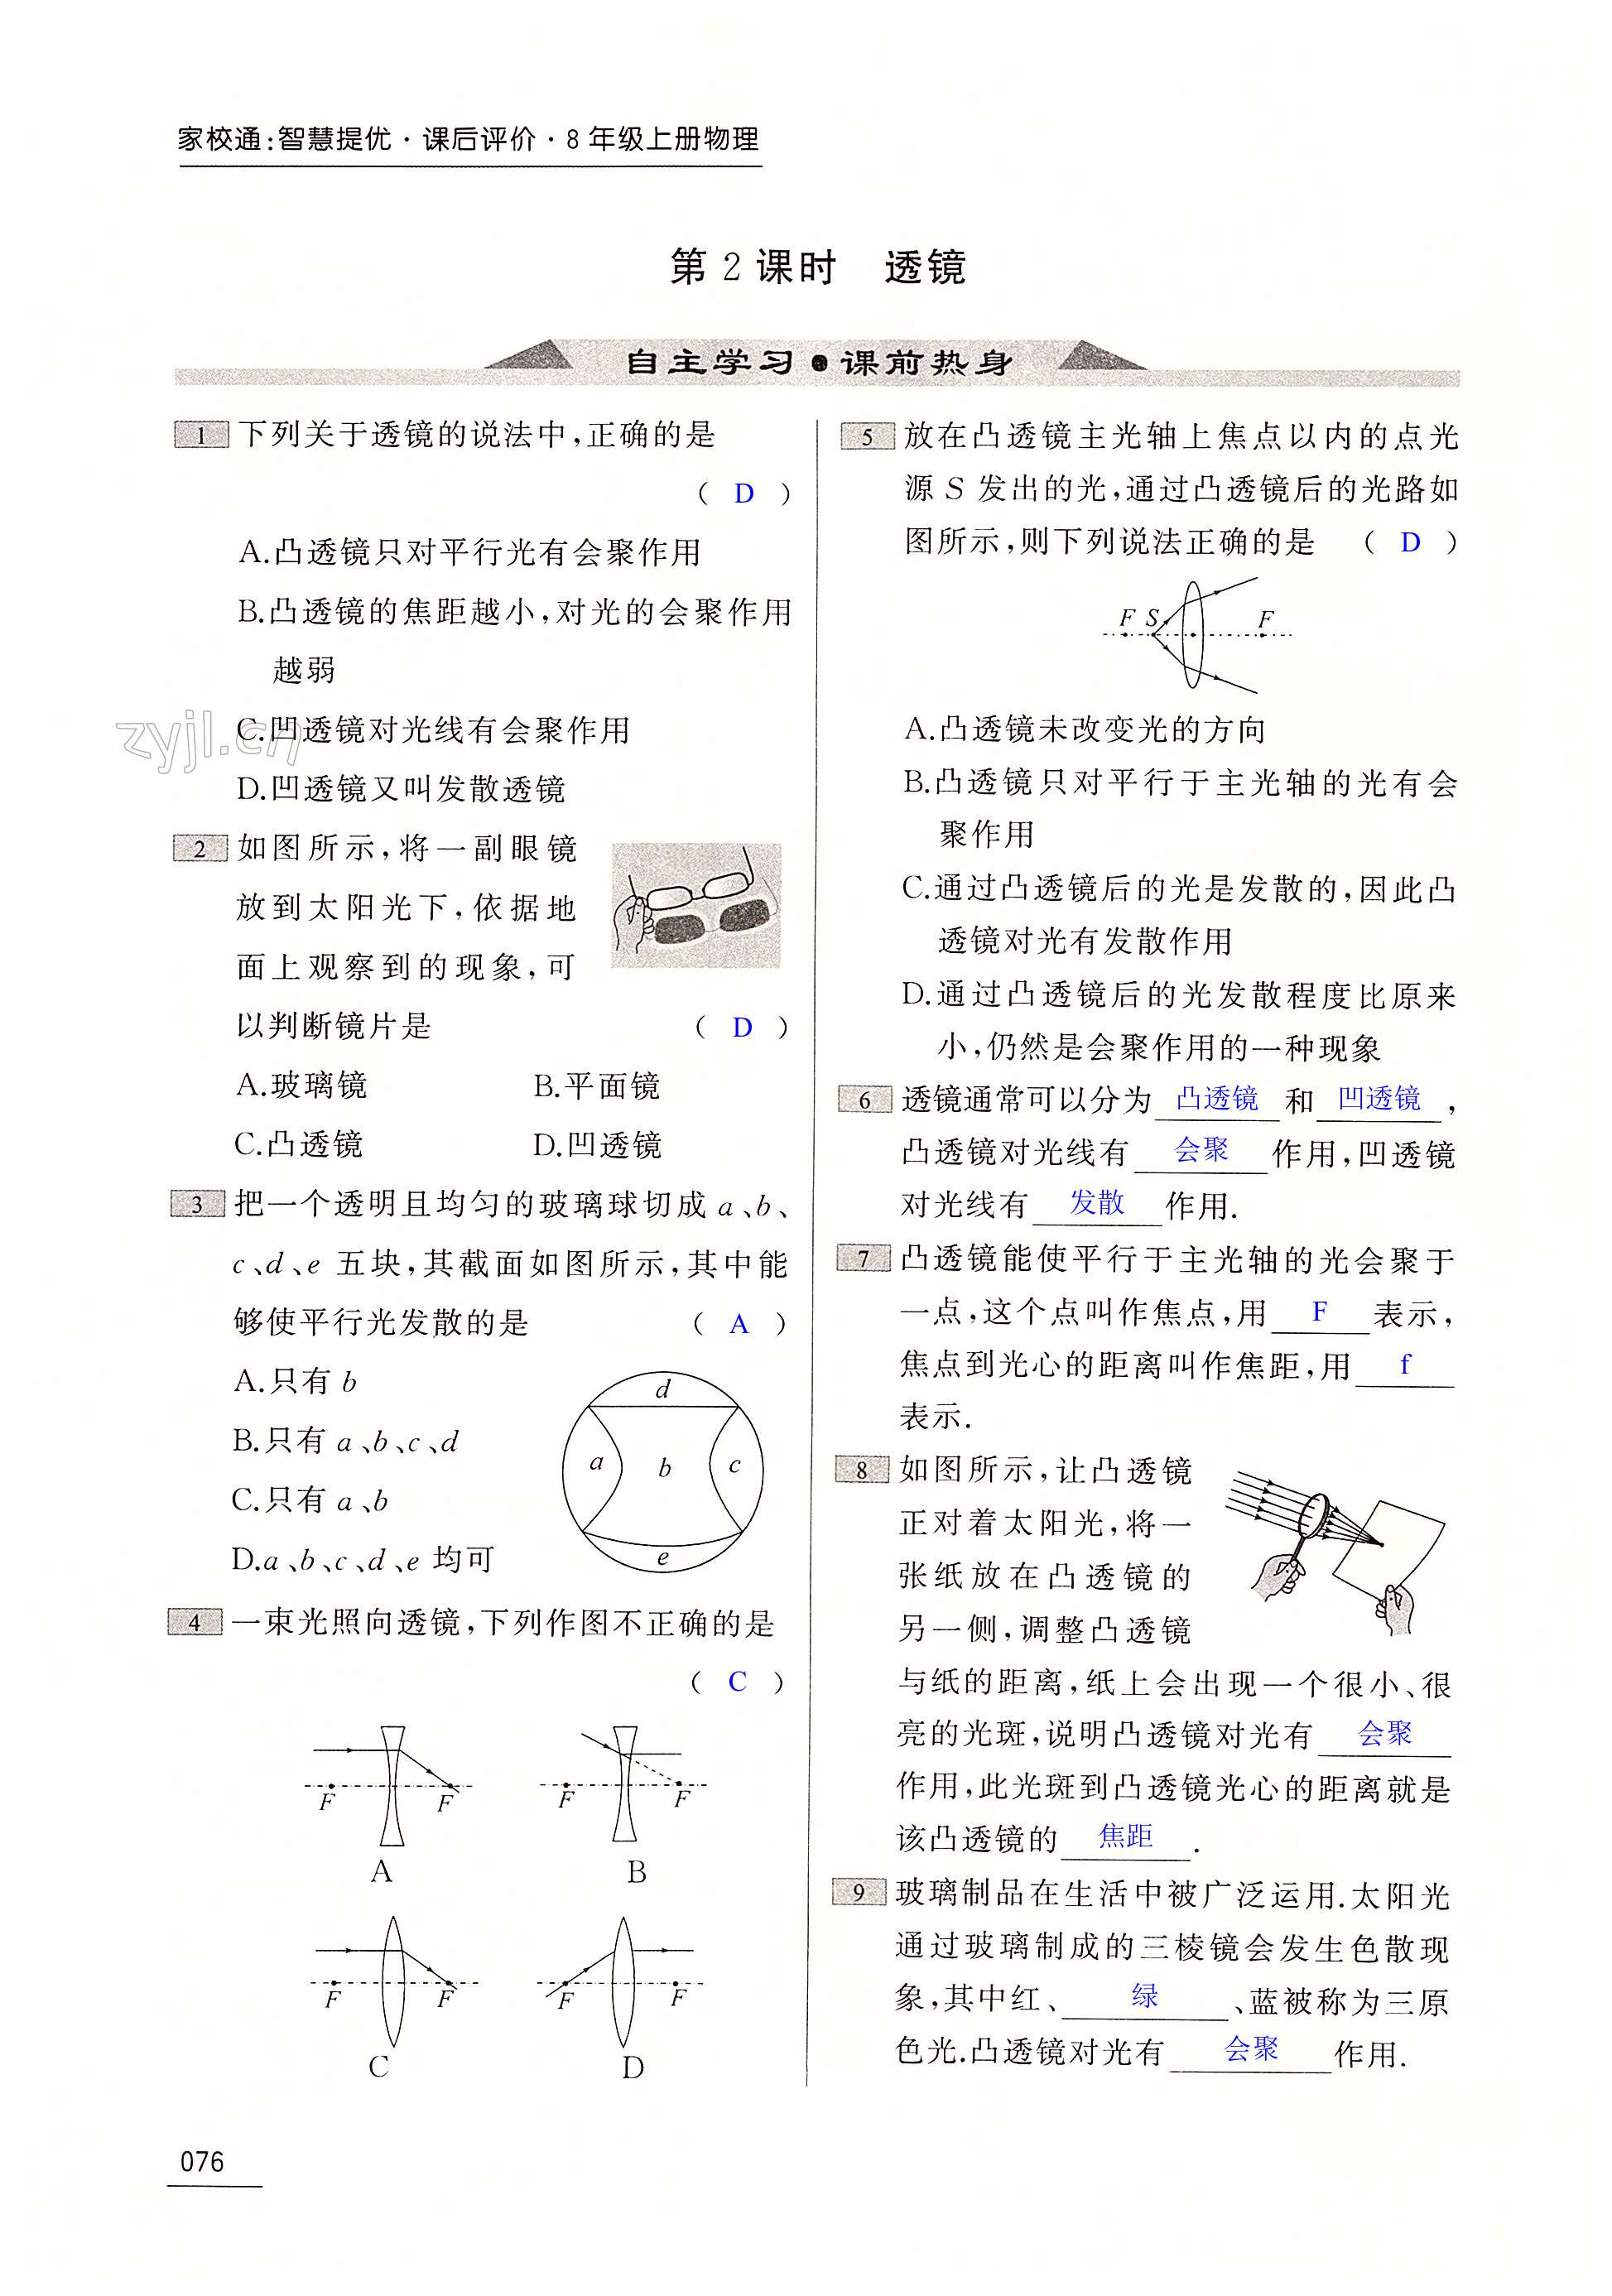 家校通:智慧提优·课后评价·8年级上册物理
第2课时 透镜
自主学习·课前热身
1 下列关于透镜的说法中,正确的是
( D )
A.凸透镜只对平行光有会聚作用
B.凸透镜的焦距越小,对光的会聚作用
越弱
C.凹透镜对光线有会聚作用
D.凹透镜又叫发散透镜
zyjl.cn
2 如图所示,将一副眼镜
放到太阳光下,依据地
面上观察到的现象,可
以判断镜片是 ( D )
A.玻璃镜 B.平面镜
C.凸透镜 D.凹透镜
3 把一个透明且均匀的玻璃球切成a、b、
c、d、e 五块,其截面如图所示,其中能
够使平行光发散的是 ( A )
A.只有b
B.只有a、b、c、d
C.只有a、b
D.a、b、c、d、e均可
d
a b c
e
4 一束光照向透镜,下列作图不正确的是
( C )
F F F F
A B
F F F F
C D
5 放在凸透镜主光轴上焦点以内的点光
源S发出的光,通过凸透镜后的光路如
图所示,则下列说法正确的是 ( D )
F S F
A.凸透镜未改变光的方向
B.凸透镜只对平行于主光轴的光有会
聚作用
C.通过凸透镜后的光是发散的,因此凸
透镜对光有发散作用
D.通过凸透镜后的光发散程度比原来
小,仍然是会聚作用的一种现象
6 透镜通常可以分为 凸透镜 和 凹透镜 ,
凸透镜对光线有 会聚 作用,凹透镜
对光线有 发散 作用.
7 凸透镜能使平行于主光轴的光会聚于
一点,这个点叫作焦点,用 F 表示,
焦点到光心的距离叫作焦距,用 f
表示.
8 如图所示,让凸透镜
正对着太阳光,将一
张纸放在凸透镜的
另一侧,调整凸透镜
与纸的距离,纸上会出现一个很小、很
亮的光斑,说明凸透镜对光有 会聚
作用,此光斑到凸透镜光心的距离就是
该凸透镜的 焦距 .
9 玻璃制品在生活中被广泛运用.太阳光
通过玻璃制成的三棱镜会发生色散现
象,其中红、 绿 、蓝被称为三原
色光.凸透镜对光有 会聚 作用.
076